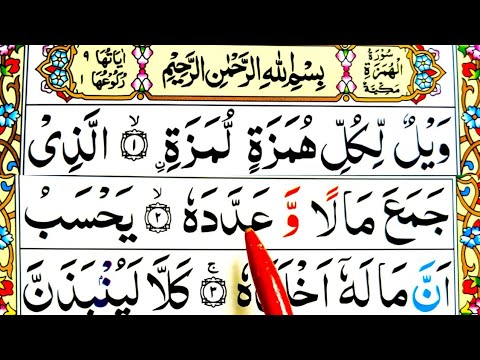 سُوۡرَةُ الۡهُمَزَةِ مَكِّيَّةٌ
بِسۡمِ اللّٰهِ الرَّحۡمٰنِ الرَّحِيۡمِ
اٰيَاتُهَا ٩ رُكُوۡعُهَا ١
وَيۡلٌ لِّكُلِّ هُمَزَةٍ لُّمَزَةِ ۙ‏ن ﴿١﴾ الَّذِىۡ
جَمَعَ مَالًا وَّ عَدَّدَهٗ ۙ‏ ﴿٢﴾ يَحۡسَبُ
اَنَّ مَالَهٗۤ اَخۡلَدَهٗ‌ ۚ‏ ﴿٣﴾ كَلَّا‌ لَيُنۡۢبَذَنَّ